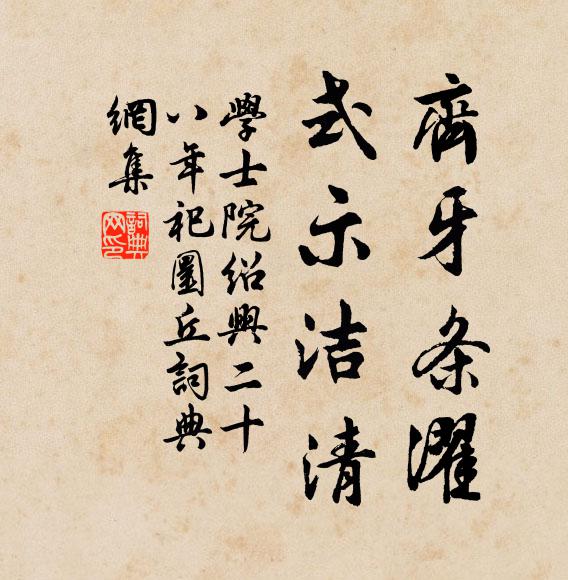 齊牙条濯
式示洁清
學士院绍興二十
八年祀圜丘詞典
網集
詞典网印